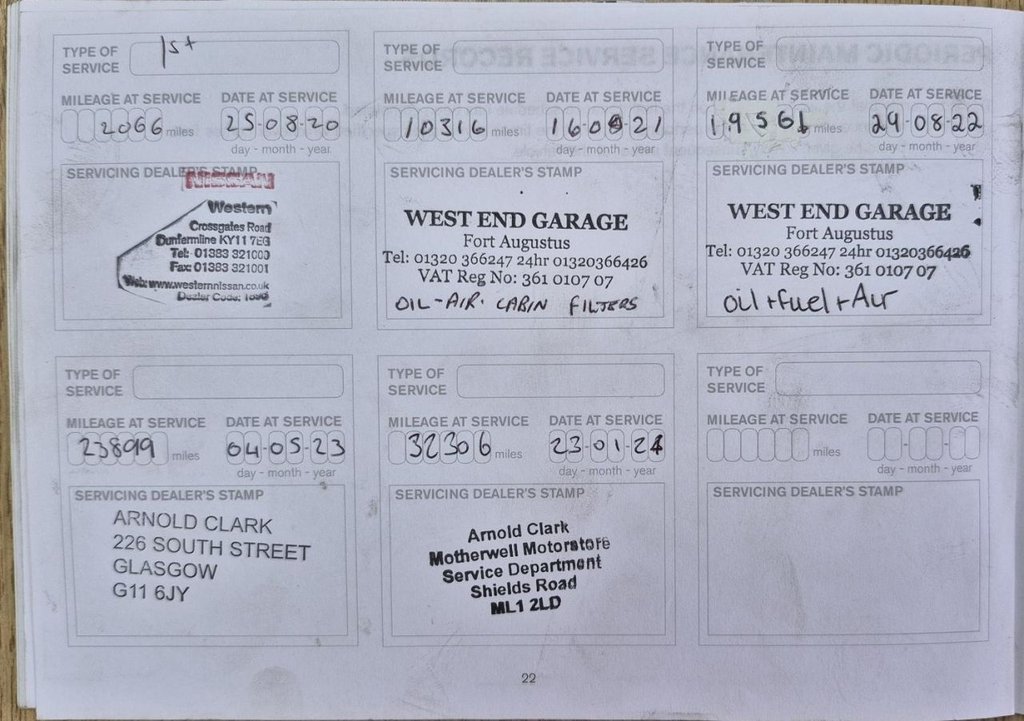 TYPE OF SERVICE 1st
MILEAGE AT SERVICE DATE AT SERVICE
2066 miles 25-08-20
day - month - year
SERVICING DEALER'S STAMP
NISSAN
Western
Crossgates Road
Dunfermline KY11 7EG
Tel: 01383 321000
Fax: 01383 321001
Web: www.westernnissan.co.uk
Dealer Code:
TYPE OF SERVICE
MILEAGE AT SERVICE DATE AT SERVICE
10316 miles 16-08-21
day - month - year
SERVICING DEALER'S STAMP
WEST END GARAGE
Fort Augustus
Tel: 01320 366247 24hr 01320366426
VAT Reg No: 361 0107 07
OIL-AIR. CABIN FILTERS
TYPE OF SERVICE
MILEAGE AT SERVICE DATE AT SERVICE
19561 miles 29-08-22
day - month - year
SERVICING DEALER'S STAMP
WEST END GARAGE
Fort Augustus
Tel: 01320 366247 24hr 01320366426
VAT Reg No: 361 0107 07
oil+fuel+Air
TYPE OF SERVICE
MILEAGE AT SERVICE DATE AT SERVICE
miles 04-05-23
day - month - year
SERVICING DEALER'S STAMP
ARNOLD CLARK
226 SOUTH STREET
GLASGOW
G11 6JY
TYPE OF SERVICE
MILEAGE AT SERVICE DATE AT SERVICE
32306 miles 23-01-24
day - month - year
SERVICING DEALER'S STAMP
Arnold Clark
Motherwell Motorstore
Service Department
Shields Road
ML1 2LD
TYPE OF SERVICE
MILEAGE AT SERVICE DATE AT SERVICE
miles
day - month - year
SERVICING DEALER'S STAMP
22